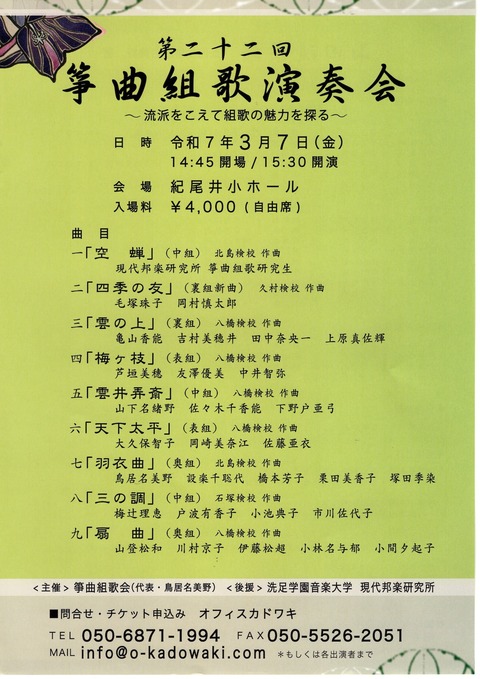 第二十二回
箏曲組歌演奏会
～流派をこえて組歌の魅力を探る～
日 時 令和7年3月7日(金)
14:45 開場 / 15:30 開演
会 場 紀尾井小ホール
入場料 ¥4,000 (自由席)
曲 目
一「空 蝉」(中組) 北島検校 作曲
現代邦楽研究所 箏曲組歌研究生
二「四季の友」(裏組新曲) 久村検校 作曲
毛塚珠子 岡村慎太郎
三「雲の上」(裏組) 八橋検校 作曲
亀山香能 吉村美穂井 田中奈央一 上原真佐輝
四「梅ヶ枝」(表組) 八橋検校 作曲
芦垣美穂 友澤優美 中井智弥
五「雲井弄斎」(中組) 八橋検校 作曲
山下名緒野 佐々木千香能 下野戸亜弓
六「天下太平」(表組) 八橋検校 作曲
大久保智子 岡崎美奈江 佐藤亜衣
七「羽衣曲」(奥組) 北島検校 作曲
鳥居名美野 設楽千聡代 橋本芳子 栗田美香子 塚田季染
八「三の調」(中組) 石塚検校 作曲
梅辻理恵 戸波有香子 小池典子 市川佐代子
九「扇 曲」(奥組) 八橋検校 作曲
山登松和 川村京子 伊藤松超 小林名与郁 小間夕起子
<主催> 箏曲組歌会(代表・鳥居名美野) <後援> 洗足学園音楽大学 現代邦楽研究所
■問合せ・チケット申込み オフィスカドワキ
TEL 050-6871-1994 FAX 050-5526-2051
MAIL info@o-kadowaki.com *もしくは各出演者まで